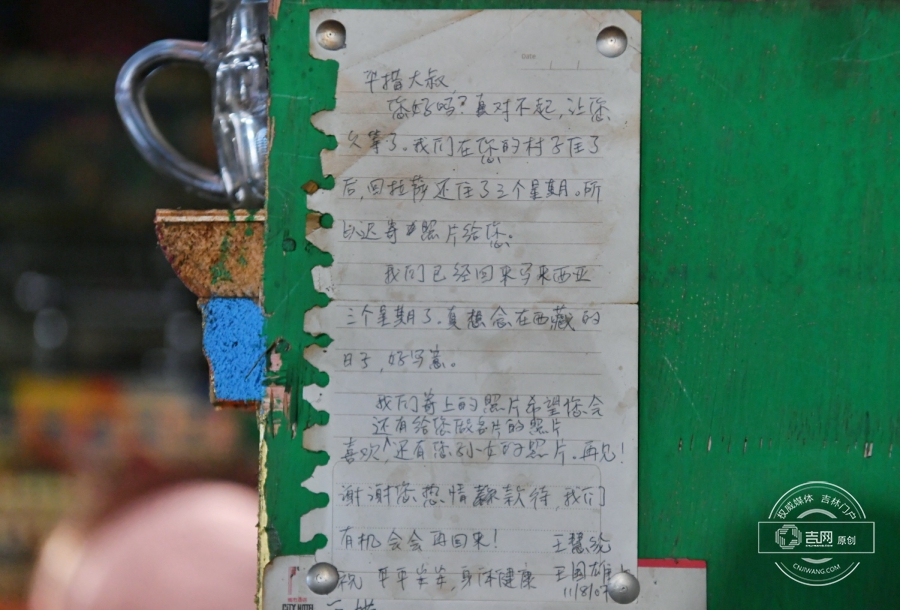 平措大叔,
您好吗?真对不起,让您
久等了。我们在您的村子住了
后,回拉萨还住了三个星期。所
以迟寄照片给您。
我们已经回来马来西亚
三个星期了。真想念在西藏的
日子,好写意。
我们寄上的照片希望您会
还有给您做名片的照片
喜欢,还有您孙女的照片。再见!
谢谢您热情款待,我们
有机会会再回来!
王慧
祝 平平安安,身体健康
王国雄
11/8/07
权威媒体 吉林门户
吉网 原创
CNJIWANG.COM